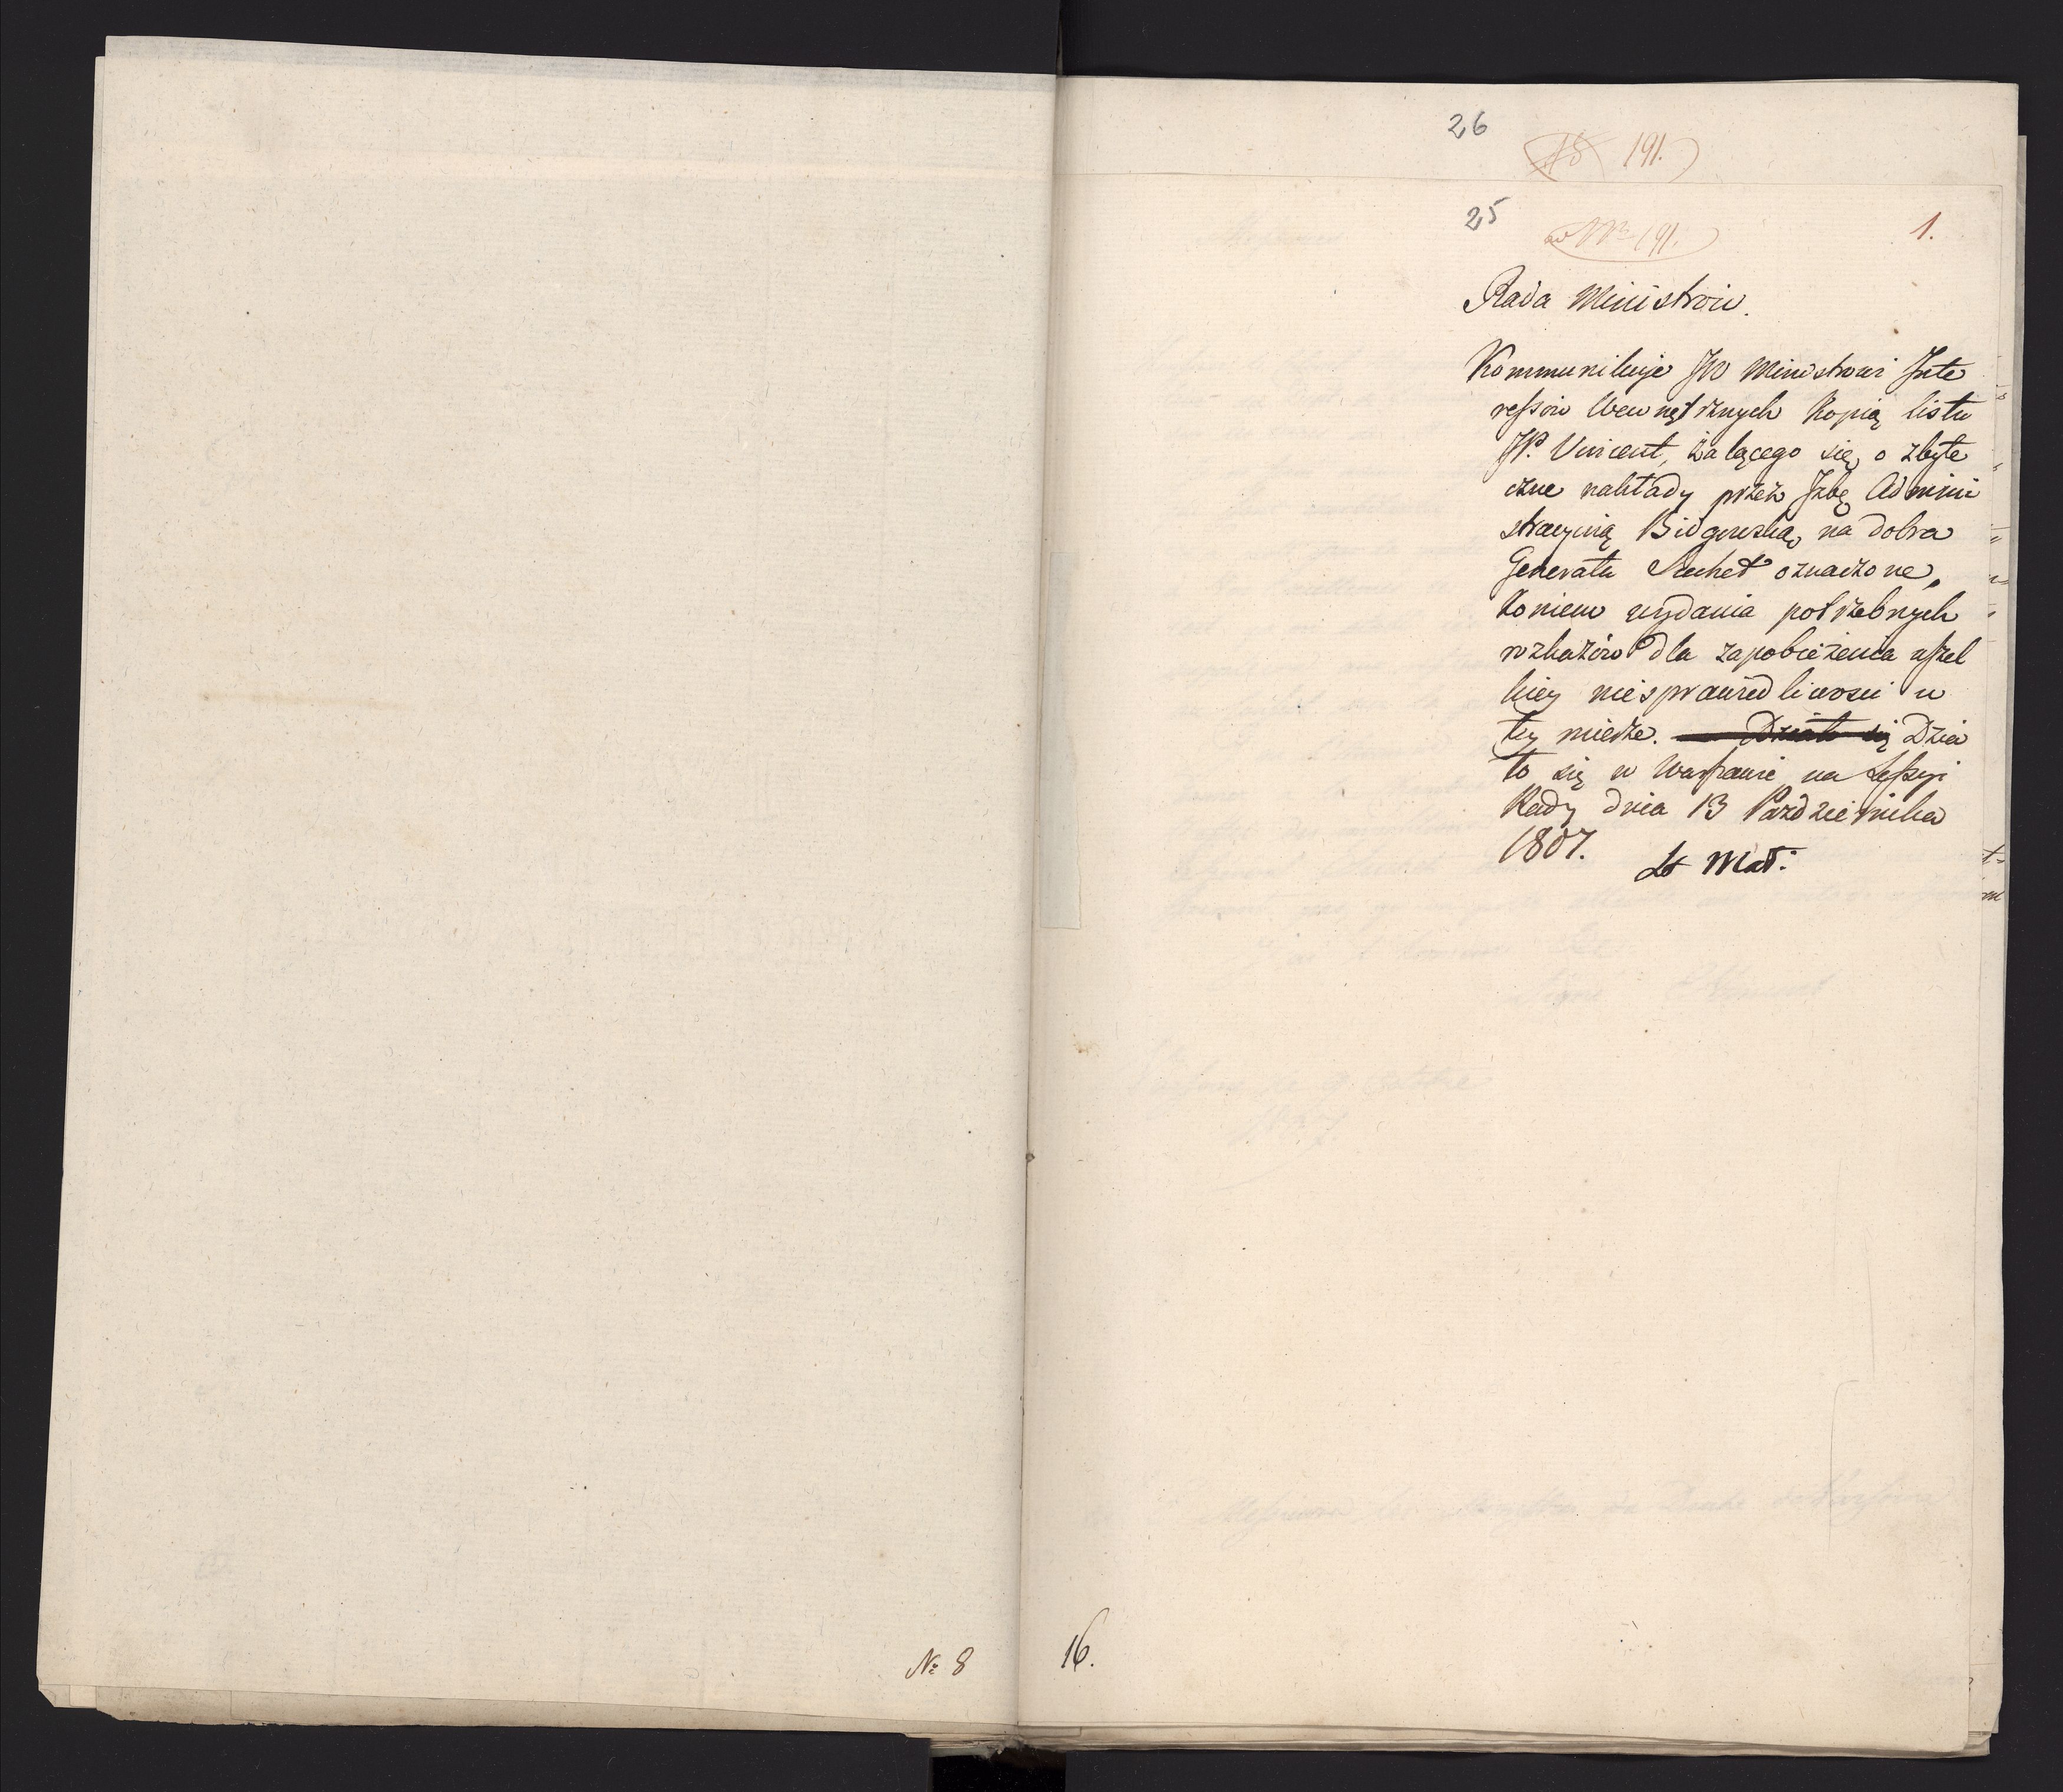 26
191.
25
ad Nro 191.
1.
Rada Ministrów.
Kommunikuje JW Ministrowi Inte
ressów Wewnętrznych kopią listu
JP. Vincent, żalącego się o zbyte
czne nakłady przez Izbę Admini
stracyiną Bidgowską, na dobra
Generału Suchet oznaczone,
koniem wydania potrzebnych
rozkazów dla zapobieżenia wszel
kiey niesprawiedliwosci w
tey mierze. Działo się Dzia
ło się w Warszawie na Sessyi
Rady dnia 13 Pazdziernika
1807.
St Mał:
№ 8
16.